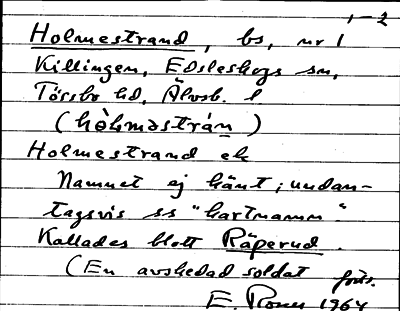 1-2
Holmestrand, bs, nr 1
Killingen, Edsleskogs sn,
Tössbo hd, Älvsb. l
(hòlmastrán)
Holmestrand ek
Namnet ej känt; undan-
tagsvis ss "kartnamn".
Kallades blott Räperud.
(En avskedad soldat
E. Rosen 1964